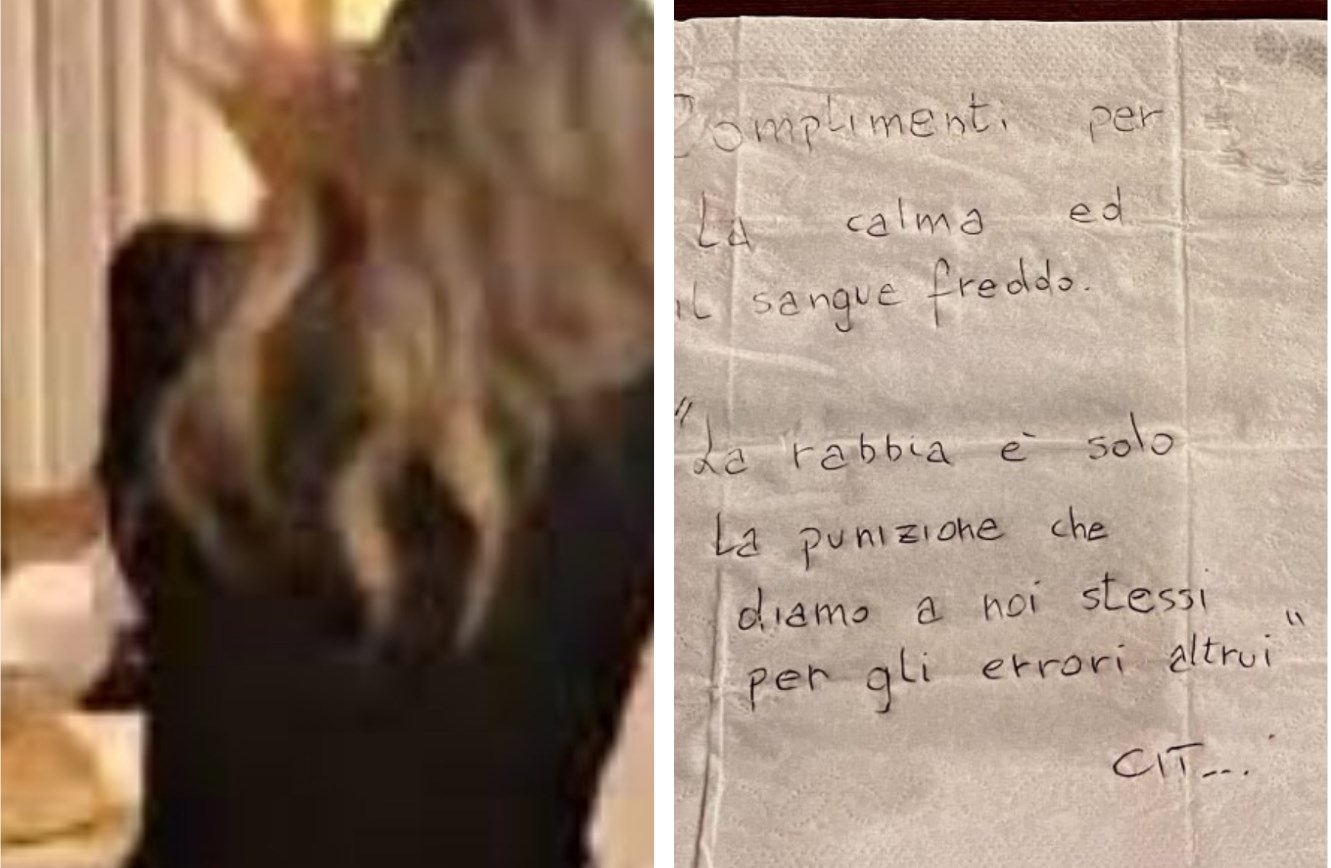 Complimenti per
La calma ed
il sangue freddo.
"La rabbia è solo
La punizione che
diamo a noi stessi
per gli errori altrui"
CIT...